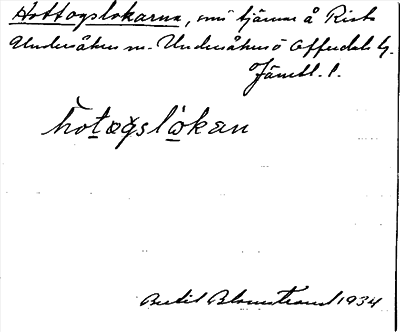 Hottogslokarna, små tjärnar å Rist
Undersåker m. Undersåkers o Offerdals tg.
Jämtl. l.
hotogslökan
Bertil Blomstrand 1934